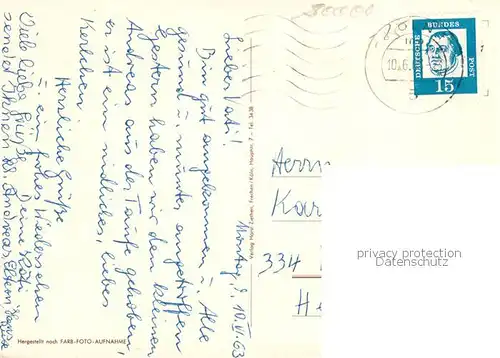 Montag, d. 10. VI. 63
Lieber Vati!
Bin gut angekommen u. Alle
gesund u. munter angetroffen
Gestern haben wir den kleinen
Andreas aus der Taufe gehoben,
er ist ein niedliches, liebes
Kerlchen.
Herzliche Grüße
u. ein frohes Wiedersehen
Deine Käti
Viele liebe Grüße
sendet Ihnen
Andreas, Eltern,
Hergestellt nach FARB-FOTO-AUFNAHME
Verlag Peter Zeethen, Frechen/Köln, Hauptstr. 7 - Tel. 3438
DEUTSCHE
BUNDES
POST
15
10.6.
Herrn
Kar
334
He
privacy protection
Datenschutz